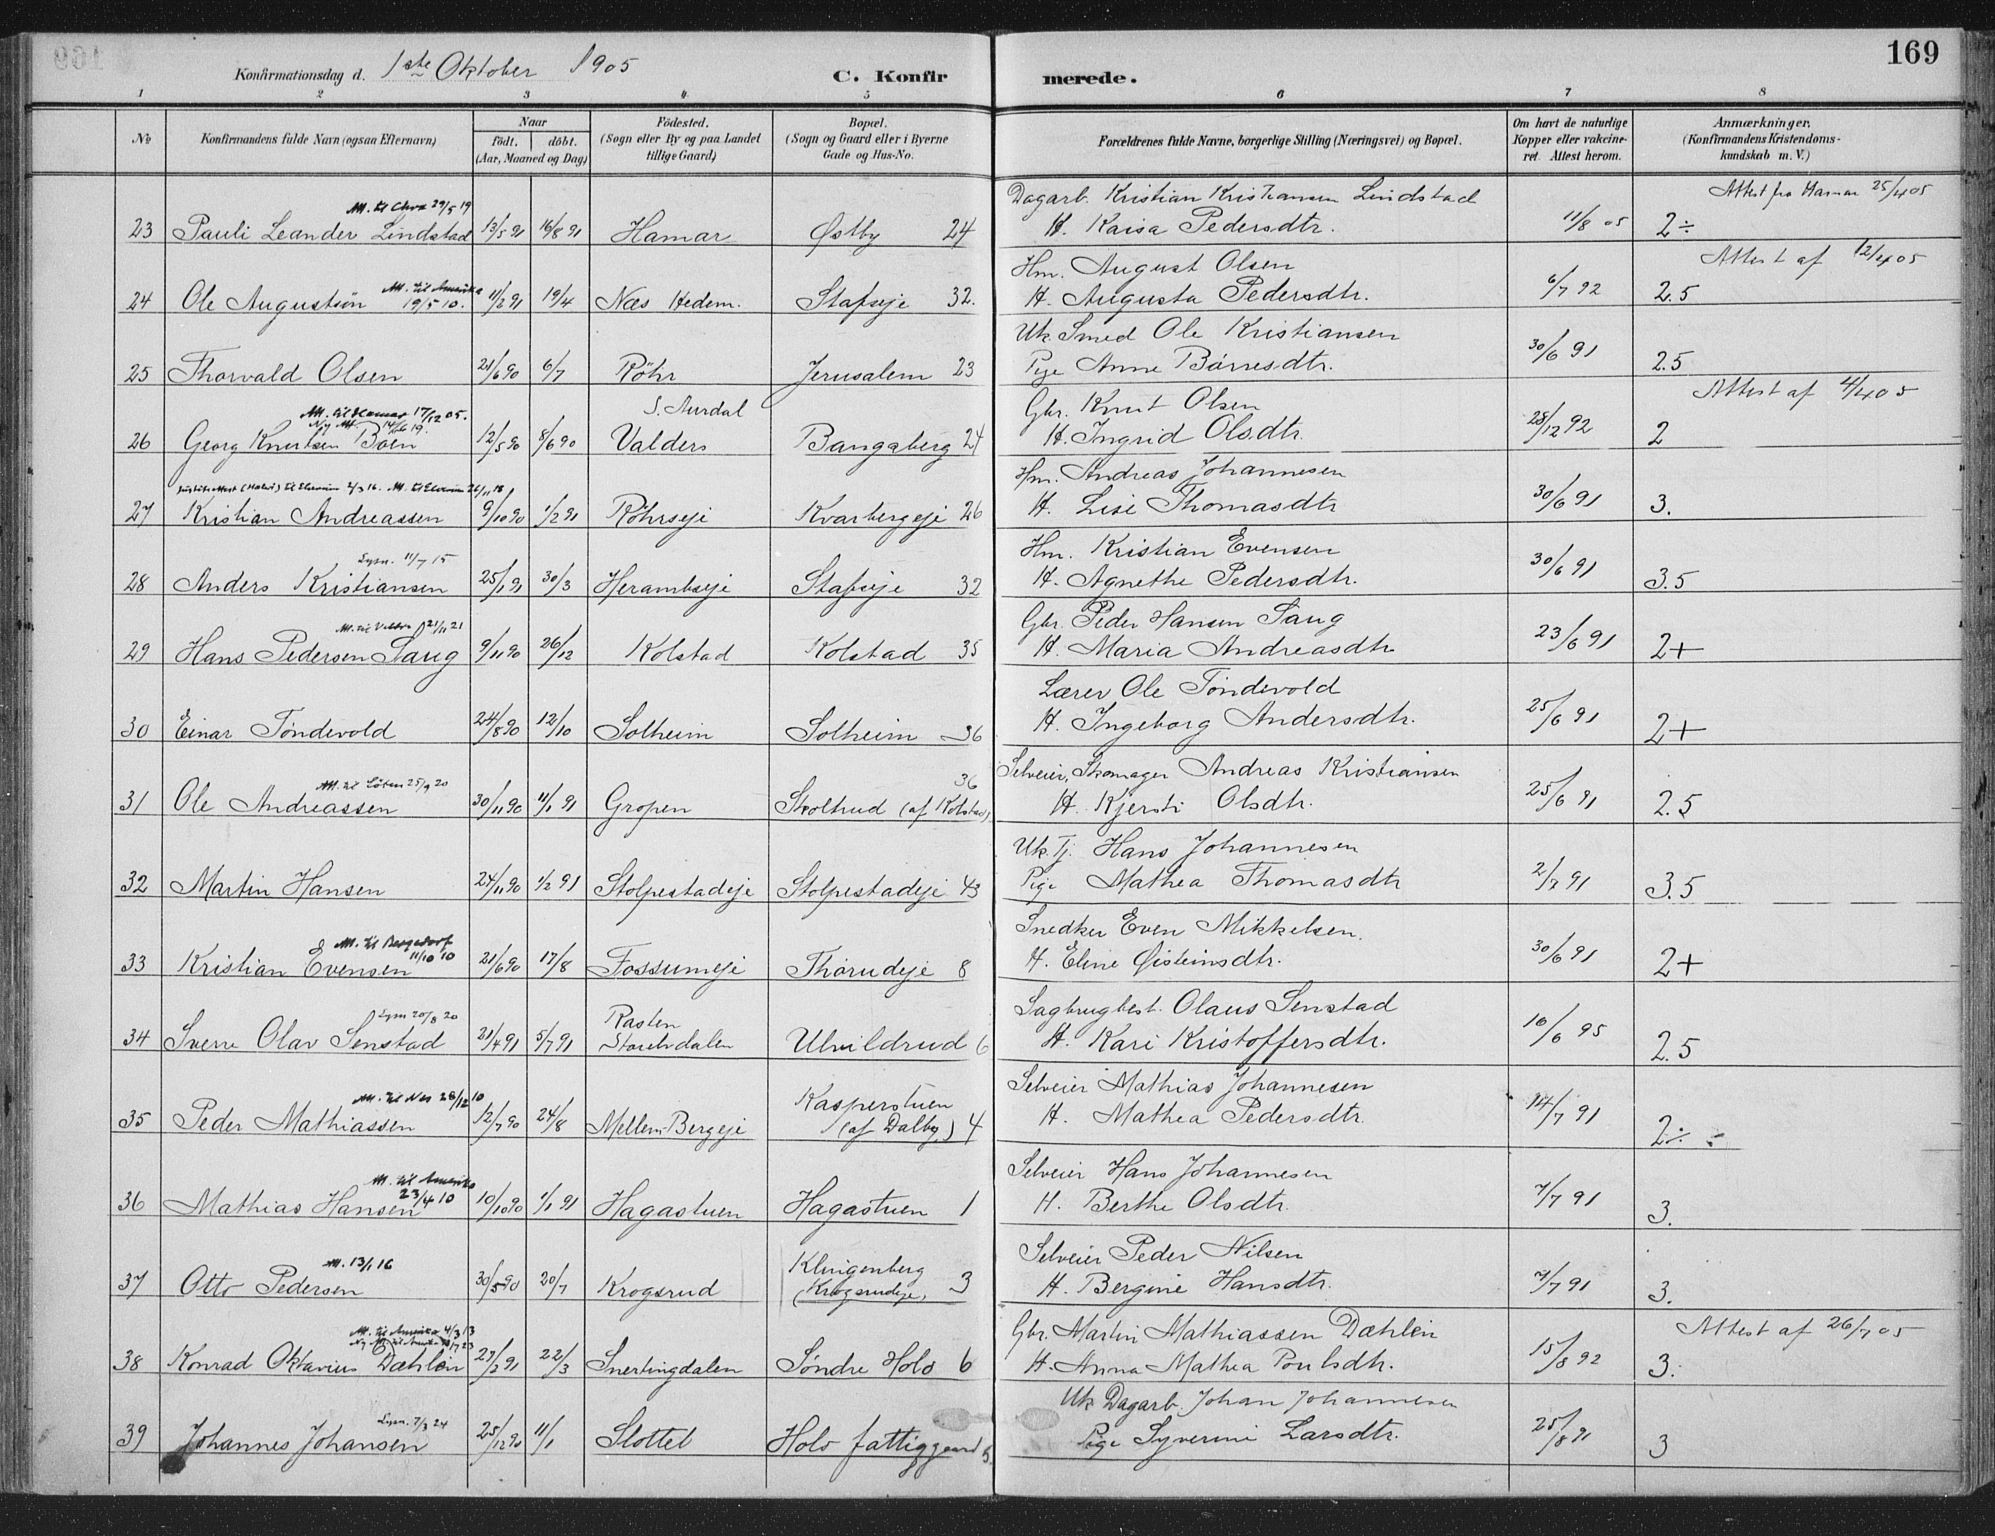 169
Konfirmationsdag d. 1ste Oktober 1905 C. Konfirmerede.
1 2 3 4 5 6 7 8
No Konfirmandens fulde Navn (ogsaa Efternavn) Naar født. døbt. (Aar, Maaned og Dag) Fødested. (Sogn eller By og paa Landet tillige Gaard) Bopæl. (Sogn og Gaard eller i Byerne Gade og Hus-No. Forældrenes fulde Navne, borgerlige Stilling (Næringsvei) og Bopæl. Om havt de naturlige Kopper eller vakcineret. Attest herom. Anmærkninger. (Konfirmandens Kristendomskundskab m. V.)
Att. til Chra 29/5 19 Dagarb. Kristian Kristiansen Lindstad Attest fra Hamar 25/4 05
23 Pauli Leander Lindstad 13/5 91 16/8 91 Hamar Østby 24 H. Kaisa Pedersdtr. 11/8 05 2÷
Att. til Amerika 19/5 10. Hm. August Olsen Attest af 12/4 05
24 Ole Augustsön 11/2 91 19/4 Næs Hedem. Stafseje 32. H. Augusta Pedersdtr. 6/7 92 2.5
Uk. Smed Ole Kristiansen
25 Thorvald Olsen 21/6 90 6/7 Röhr Jerusalem 23 Pige Anne Børresdtr. 30/6 91 2.5
Att. til Hamar 17/12 05. Ny Att. S. Aurdal Gbr. Knut Olsen Attest af 4/4 05
26 Georg Knutsen Böen 12/5 90 8/6 90 Valders Bangsberg 24 H. Ingrid Olsdtr. 28/12 92 2
Att. til Elverum 26/11 18 Hm. Andreas Johannesen
27 Kristian Andreassen 9/10 90 1/2 91 Röhrseje Kvarbergeje 26 H. Lise Thomasdtr 30/6 91 3.
Lysn. 11/7 15 Hm. Kristian Evensen
28 Anders Kristiansen 25/1 91 30/3 Herambseje Stafseje 32 H. Agnethe Pedersdtr. 30/6 91 3.5
Att. til 21/11 21 Gbr. Peder Hansen Saug
29 Hans Pedersen Saug 9/11 90 26/12 Kolstad Kolstad 35 H. Maria Andreasdtr 23/6 91 2+
Lærer Ole Töndevold
30 Einar Töndevold 24/8 90 12/10 Solheim Solheim 36 H. Ingeborg Andersdtr. 25/6 91 2+
Att. til Löten 25/9 20 36 Selveier, Skomager Andreas Kristiansen
31 Ole Andreassen 30/11 90 11/1 91 Gropen Skoltrud (af Kolstad) H. Kjersti Olsdtr. 25/6 91 2.5
Uk. Tj. Hans Johannesen
32 Martin Hansen 24/11 90 1/2 91 Stolpestadeje Stolpestadeje 43 Pige Mathea Thomasdtr 2/7 91 3.5
Att. til Bergedorf 11/10 10 Snedker Even Mikkelsen.
33 Kristian Evensen 21/6 90 17/8 Fossumeje Thorudeje 8 H. Eline Øisteinsdtr. 30/6 91 2+
Lysn 20/8 20 Rasten Sagbrugbest. Olaus Senstad
34 Sverre Olav Senstad 21/4 91 5/7 91 Storelvdalen Ulvildrud 6 H. Kari Kristoffersdtr. 16/6 95 2.5
Att. til Nes 28/12 10 Kasperstuen Selveier Mathias Johannesen
35 Peder Mathiassen 12/7 90 24/8 Mellem-Bergeje (af Dalby) 4 H. Mathea Pedersdtr. 14/7 91 2÷
Att. til Amerika 23/4 10 Selveier Hans Johannesen
36 Mathias Hansen 10/10 90 1/1 91 Hagastuen Hagastuen 1 H. Berthe Olsdtr. 7/7 91 3.
Att. 13/1 16 Klingenberg Selveier Peder Nilsen
37 Otto Pedersen 30/5 90 20/7 Krogsrud (Krogsrudeje) 3 H. Bergine Hansdtr. 7/7 91 3.
Att. til Amerika 4/3 13 Gbr. Martin Mathiassen Dæhlen Attest af 26/7 05
38 Konrad Oktavius Dæhlen 27/2 91 22/3 Snertingdalen Søndre Holo 6 H. Anna Mathea Poulsdtr. 15/8 92 3.
Lysn. 7/3 24 Uk Dagarb. Johan Johannesen
39 Johannes Johansen 25/12 90 11/1 Slottet Holo fattiggaard 5. Pige Syverine Larsdtr. 25/8 91 3